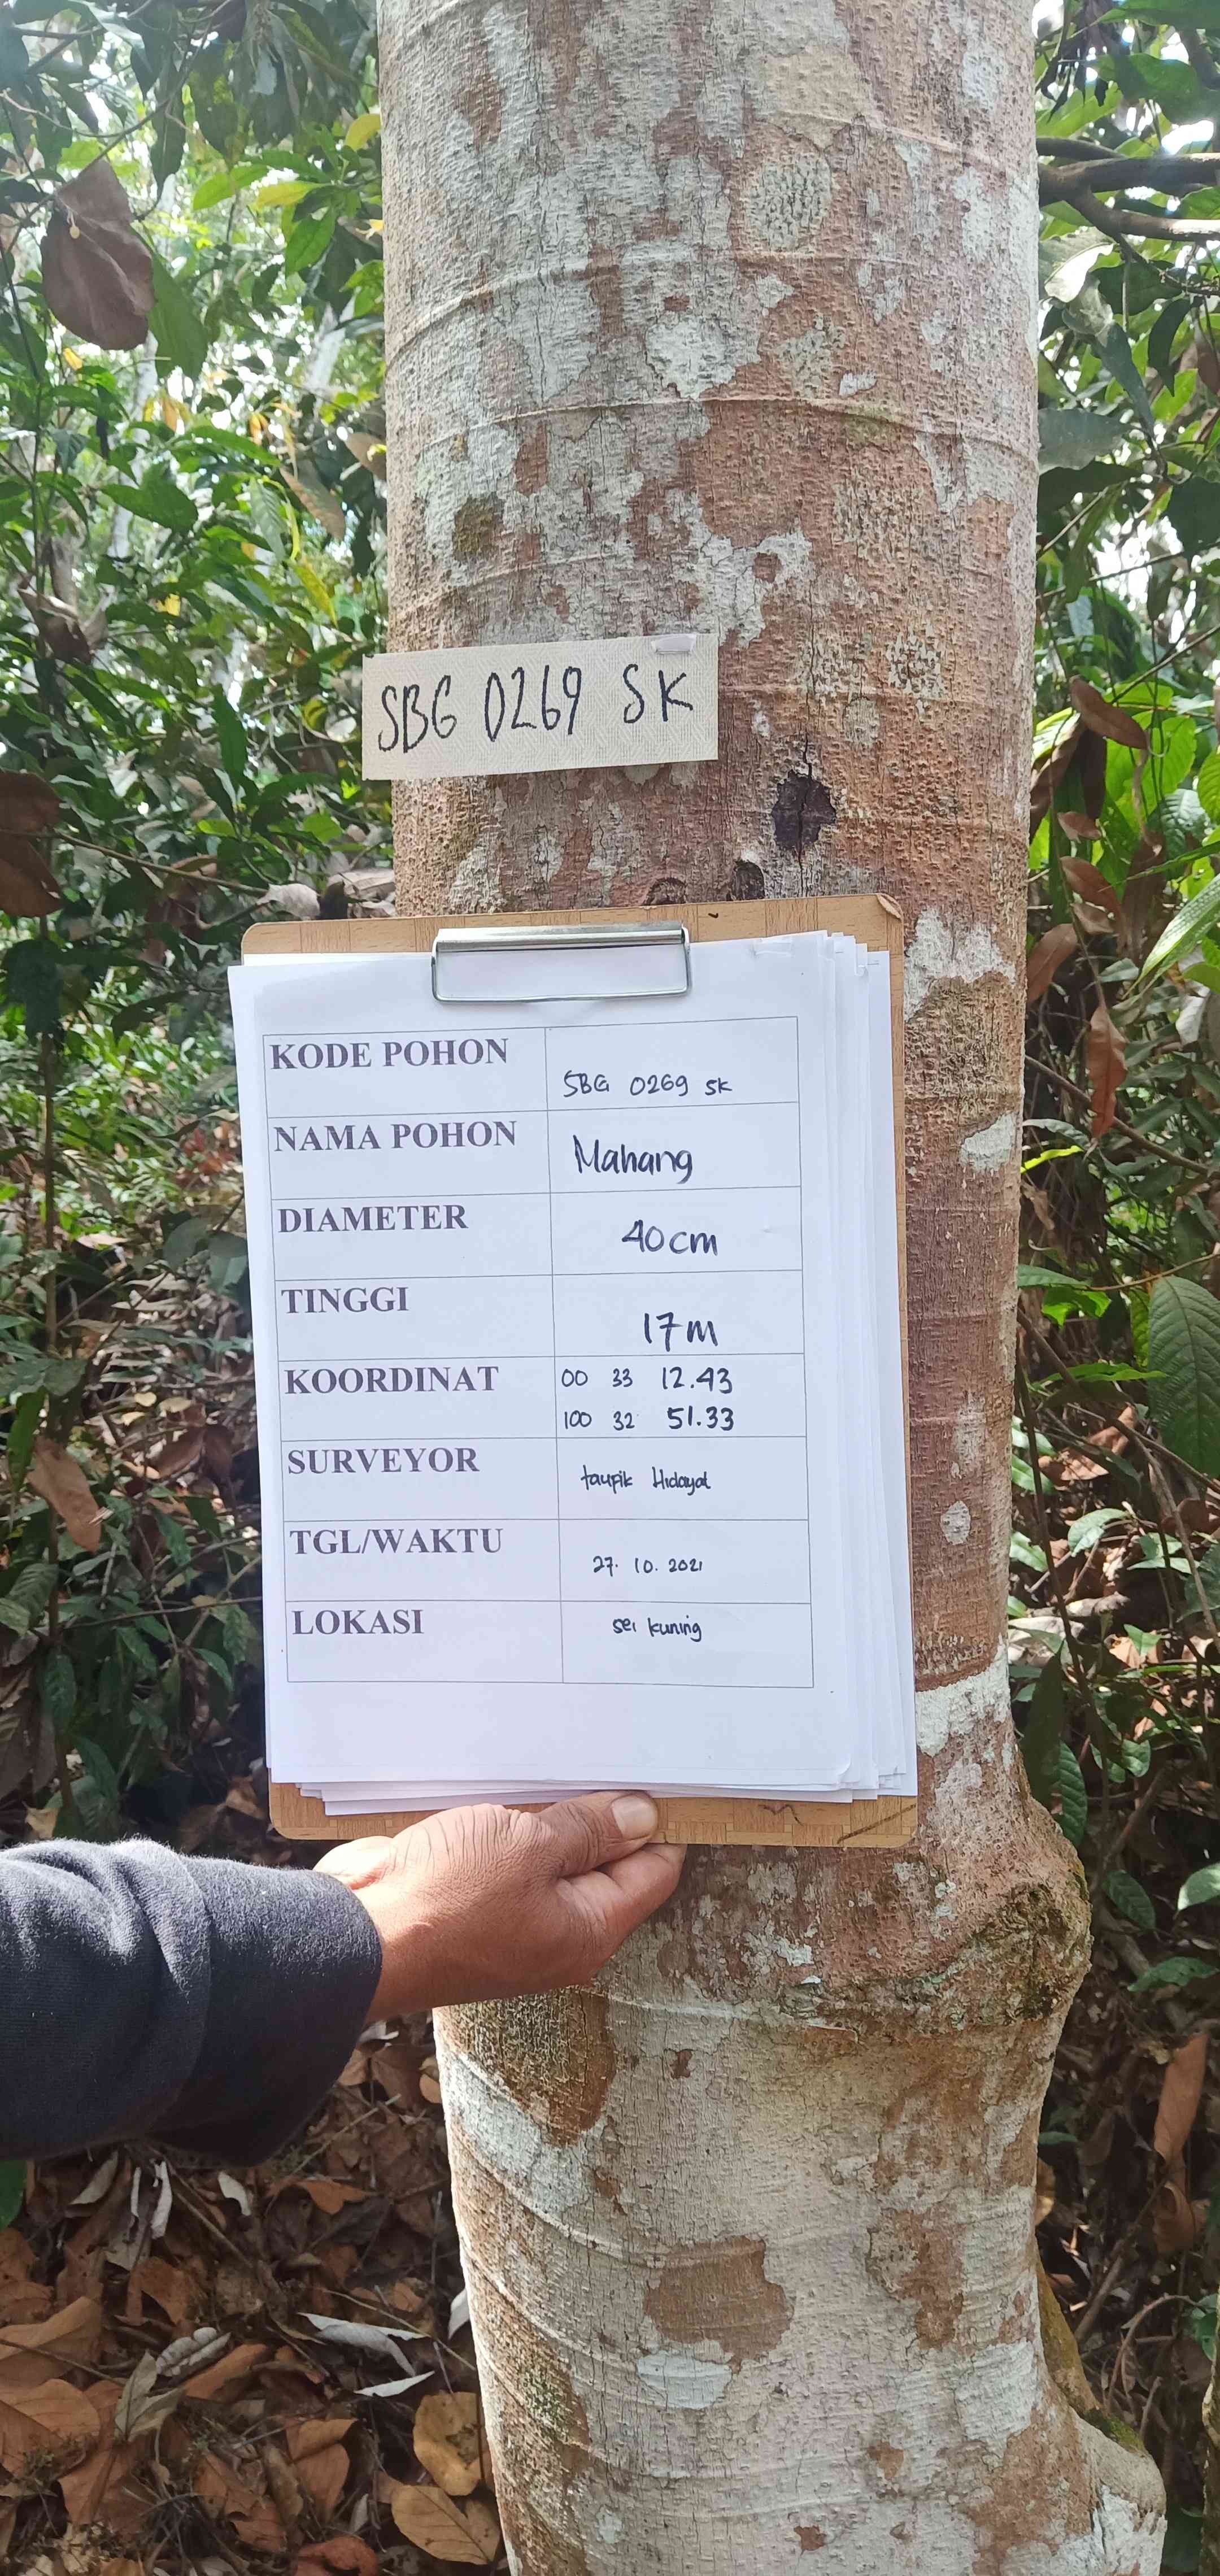 SBG 0269 SK
KODE POHON
SBG 0269 SK
NAMA POHON
Mahang
DIAMETER
40cm
TINGGI
17m
KOORDINAT
00 33 12.43
100 32 51.33
SURVEYOR
taufik Hidayat
TGL/WAKTU
27. 10. 2021
LOKASI
sei kuning